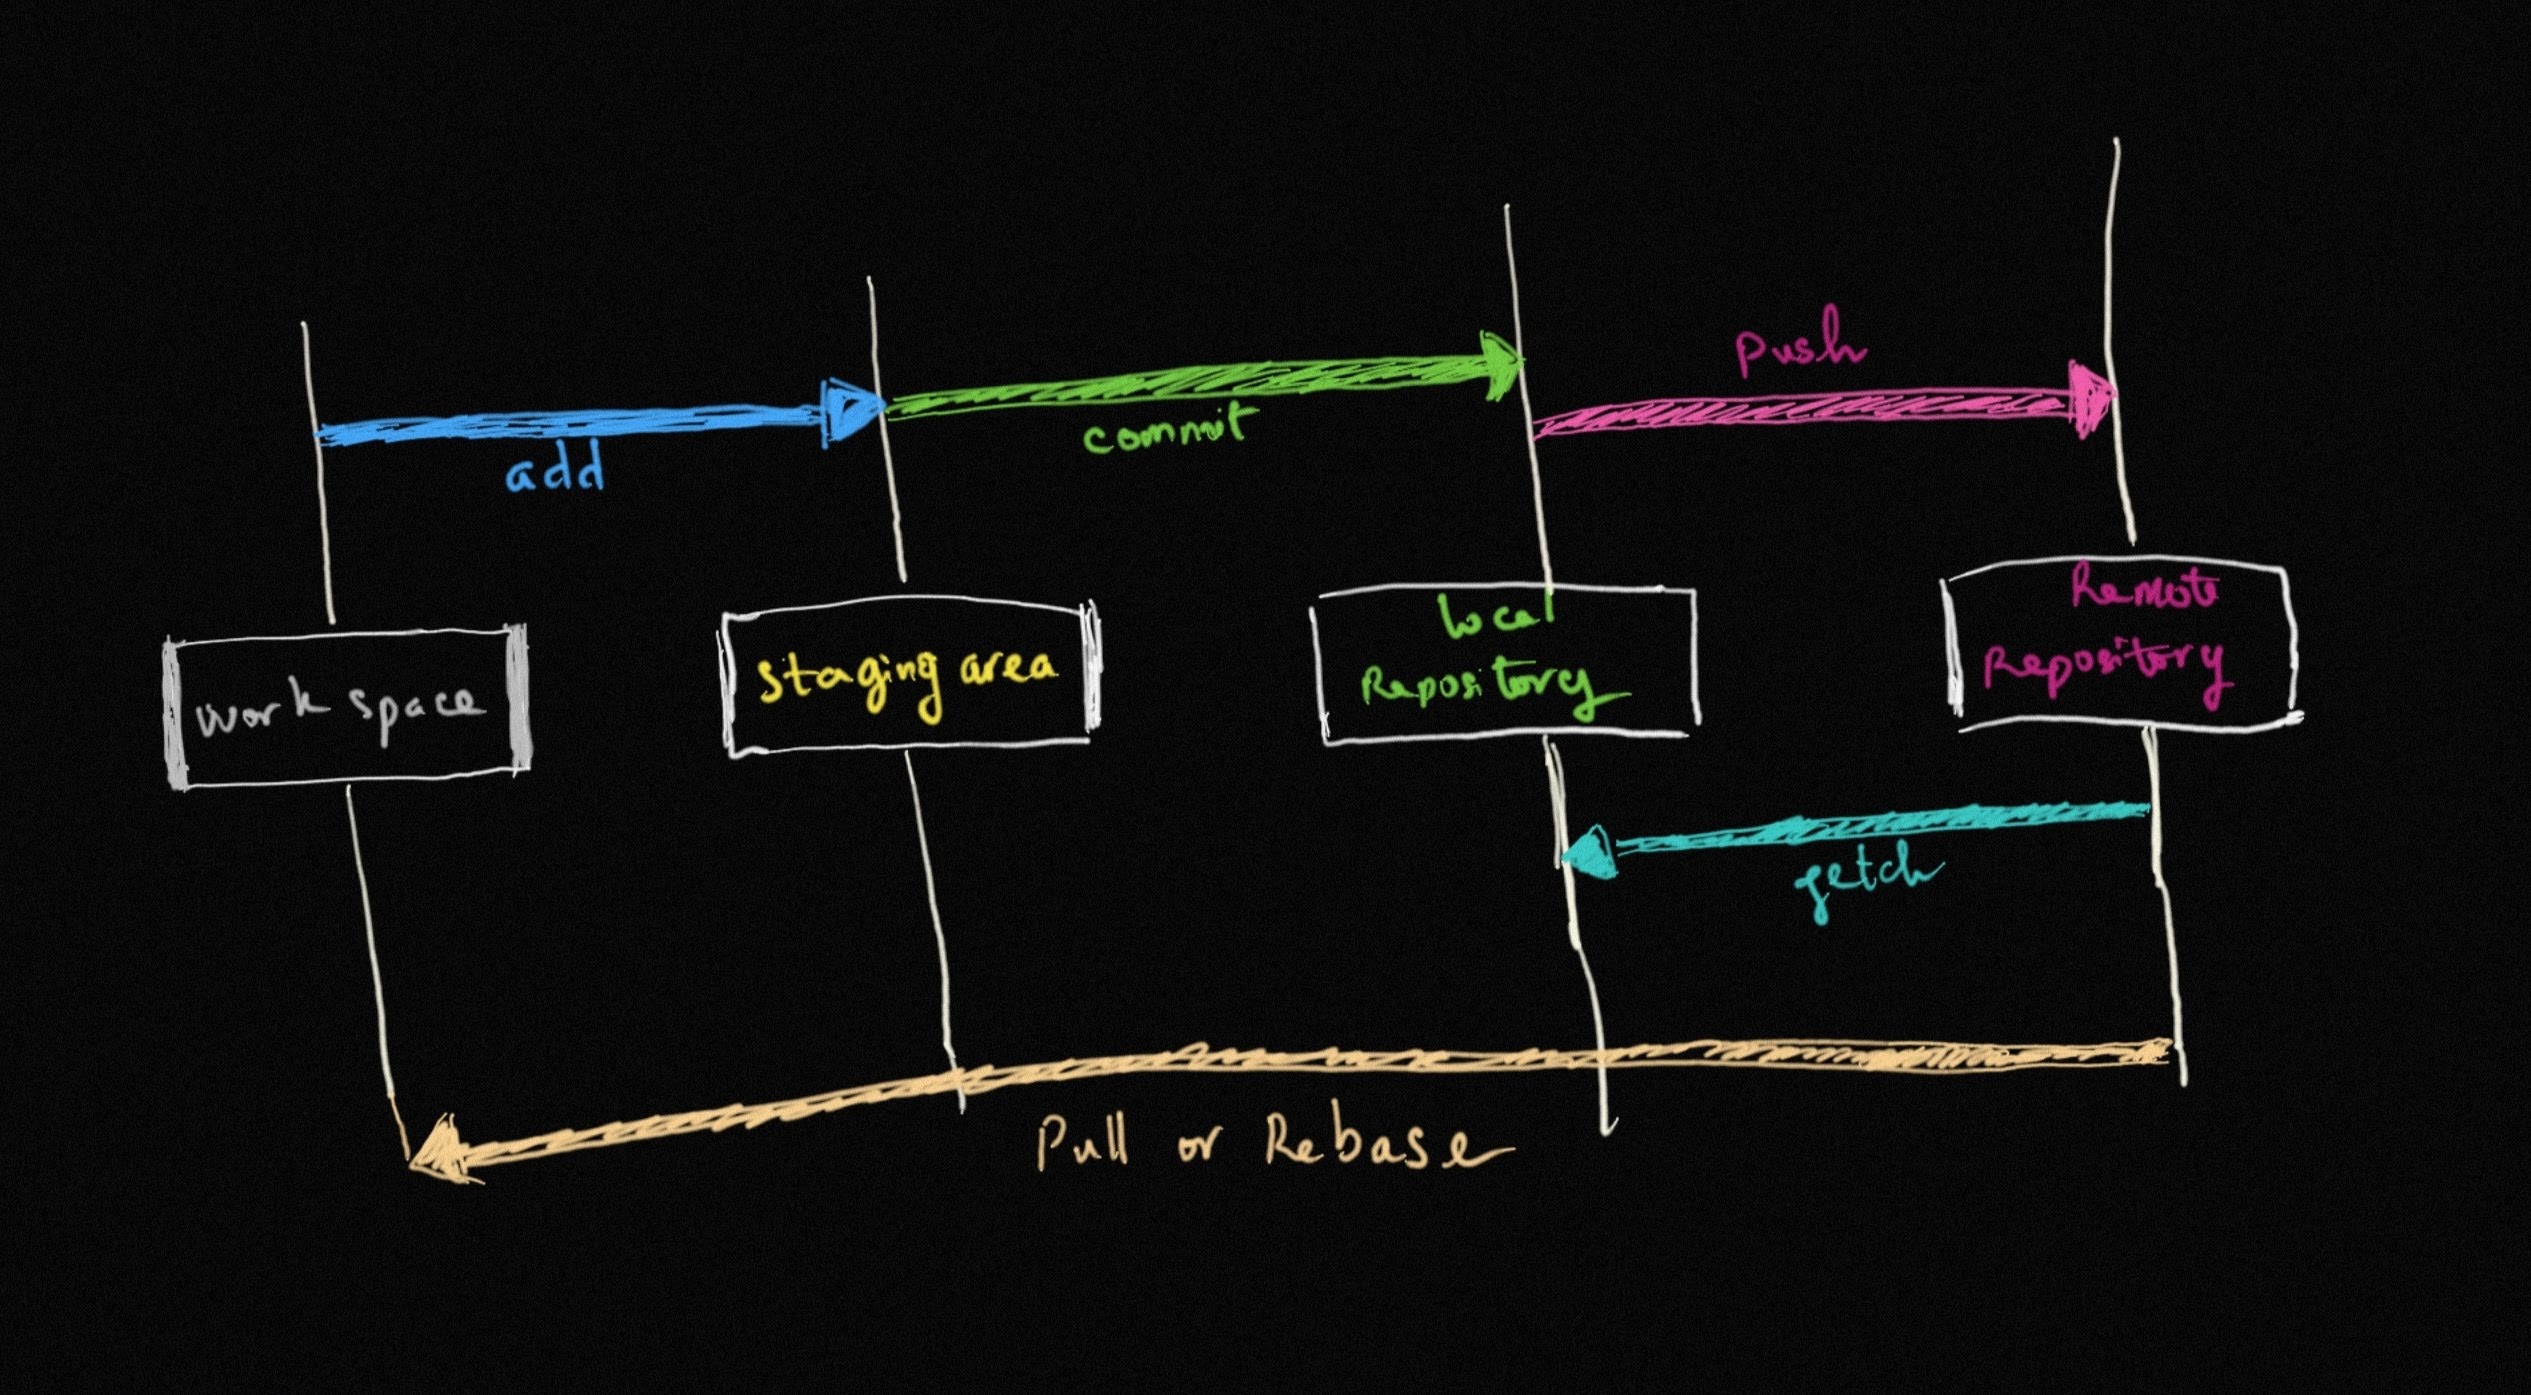 Push
commit
add
work space
staging area
local
Repository
Remote
Repository
fetch
Pull or Rebase